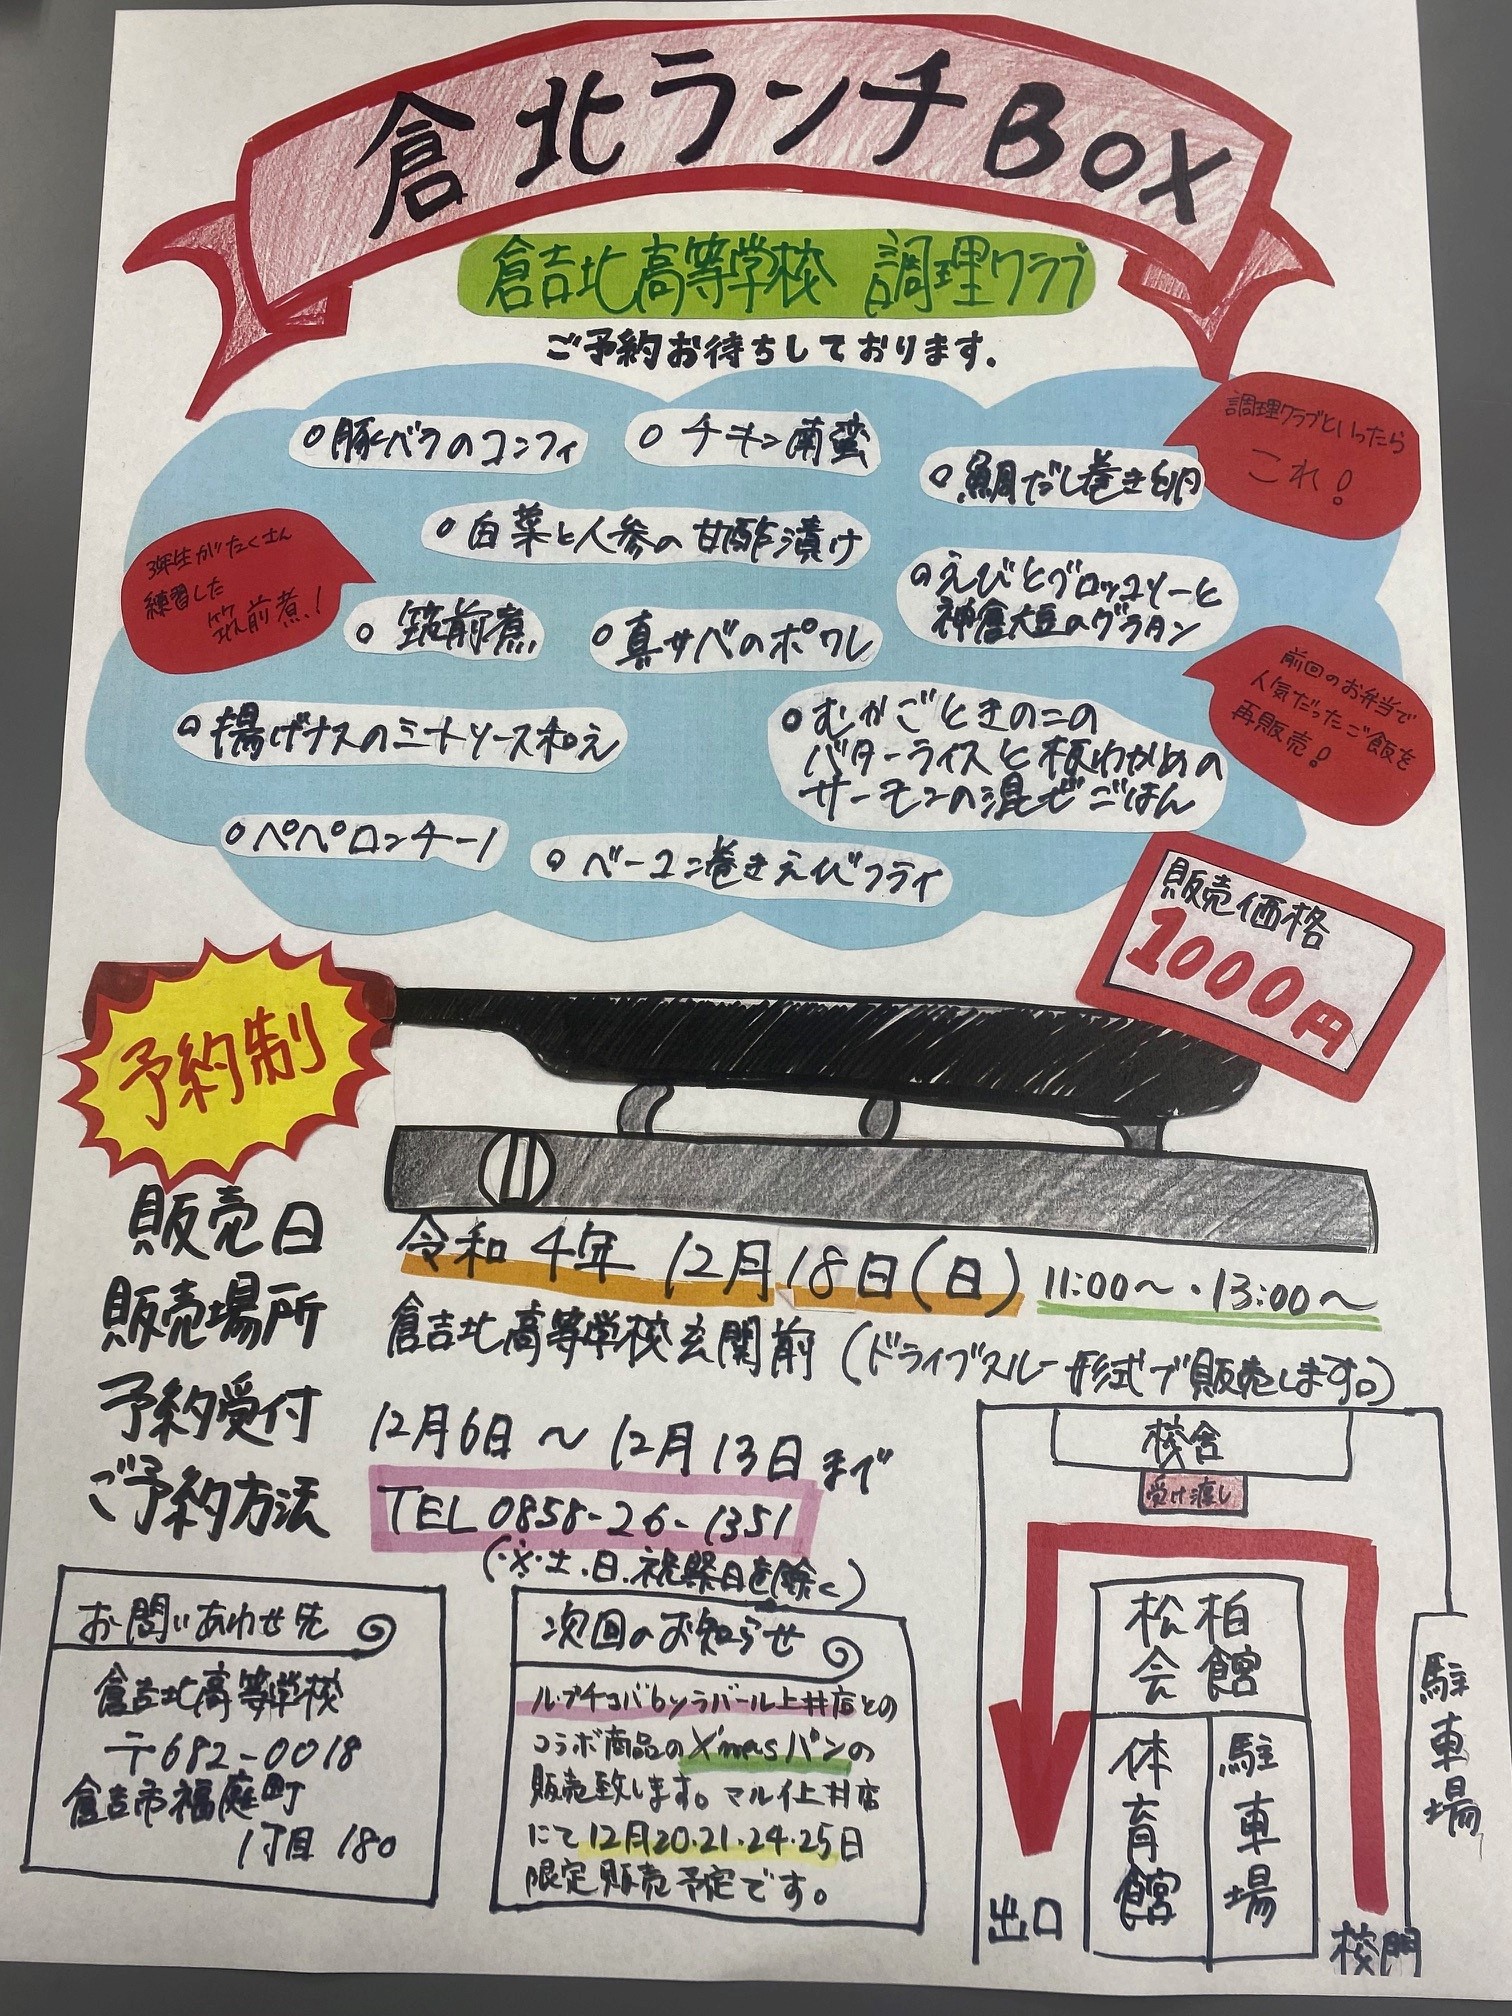 倉北ランチBOX
倉吉北高等学校 調理クラブ
ご予約お待ちしております.
調理クラブといったら
これ!
○豚バラのコンフィ
○チキン南蛮
○鯛だし巻き卵
○白菜と人参の甘酢漬け
3年生がたくさん
練習した
筑前煮!
○えびとブロッコリーと
神倉大豆のグラタン
○筑前煮
○真サバのポワレ
前回のお弁当で
人気だったご飯を
再販売!
○揚げナスのミートソース和え
○むかごときのこの
バターライスと板わかめの
サーモンの混ぜごはん
○ペペロンチーノ
○ベーコン巻きえびフライ
販売価格
1000円
予約制
販売日 令和4年 12月18日(日) 11:00〜・13:00〜
販売場所 倉吉北高等学校玄関前(ドライブスルー形式で販売します。)
予約受付 12月6日 〜 12月13日まで
ご予約方法 TEL 0858-26-1351
(※土.日.祝祭日を除く)
お問いあわせ先
倉吉北高等学校
〒682-0018
倉吉市福庭町
1丁目 180
次回のお知らせ
ルプチョバbyラバール上井店との
コラボ商品のX'masパンの
販売致します。マルイ上井店
にて12月20.21.24.25日
限定販売予定です。
校舎
受け渡し
松柏
会館
体育館
駐車場
駐車場
出口
校門